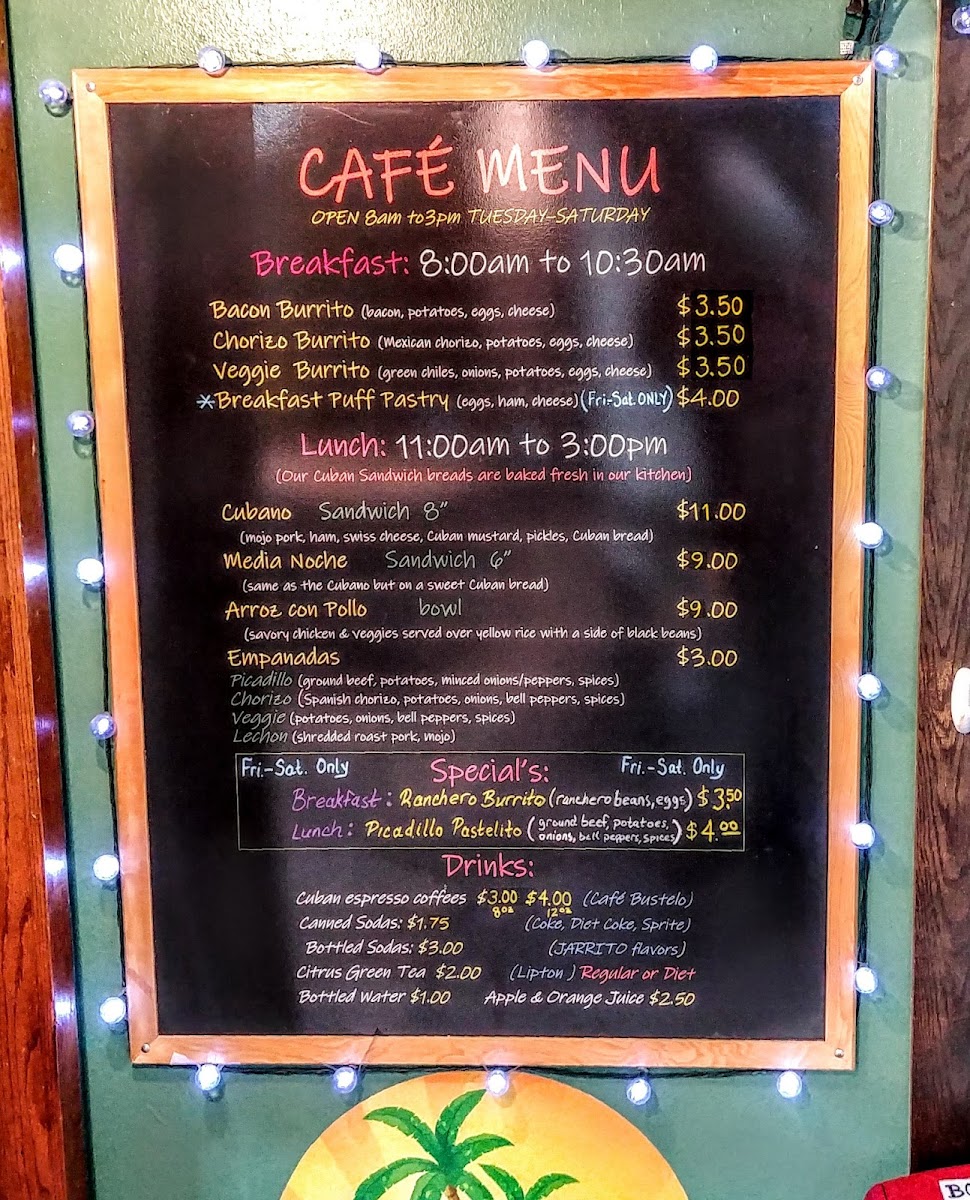 CAFÉ MENU
OPEN 8am to 3pm TUESDAY-SATURDAY
Breakfast: 8:00am to 10:30am
Bacon Burrito (bacon, potatoes, eggs, cheese) $3.50
Chorizo Burrito (Mexican chorizo, potatoes, eggs, cheese) $3.50
Veggie Burrito (green chiles, onions, potatoes, eggs, cheese) $3.50
*Breakfast Puff Pastry (eggs, ham, cheese) (Fri-Sat. ONLY) $4.00
Lunch: 11:00am to 3:00pm
(Our Cuban Sandwich breads are baked fresh in our kitchen)
Cubano Sandwich 8" $11.00
(mojo pork, ham, swiss cheese, Cuban mustard, pickles, Cuban bread)
Media Noche Sandwich 6" $9.00
(same as the Cubano but on a sweet Cuban bread)
Arroz con Pollo bowl $9.00
(savory chicken & veggies served over yellow rice with a side of black beans)
Empanadas $3.00
Picadillo (ground beef, potatoes, minced onions/peppers, spices)
Chorizo (Spanish chorizo, potatoes, onions, bell peppers, spices)
Veggie (potatoes, onions, bell peppers, spices)
Lechon (shredded roast pork, mojo)
Fri.-Sat. Only Special's: Fri.-Sat. Only
Breakfast: Ranchero Burrito (ranchero beans, eggs) $3.50
Lunch: Picadillo Pastelito (ground beef, potatoes, onions, bell peppers, spices) $4.00
Drinks:
Cuban espresso coffees $3.00 $4.00 (Café Bustelo)
8oz 12oz
Canned Sodas: $1.75 (Coke, Diet Coke, Sprite)
Bottled Sodas: $3.00 (JARRITO flavors)
Citrus Green Tea $2.00 (Lipton ) Regular or Diet
Bottled Water $1.00 Apple & Orange Juice $2.50